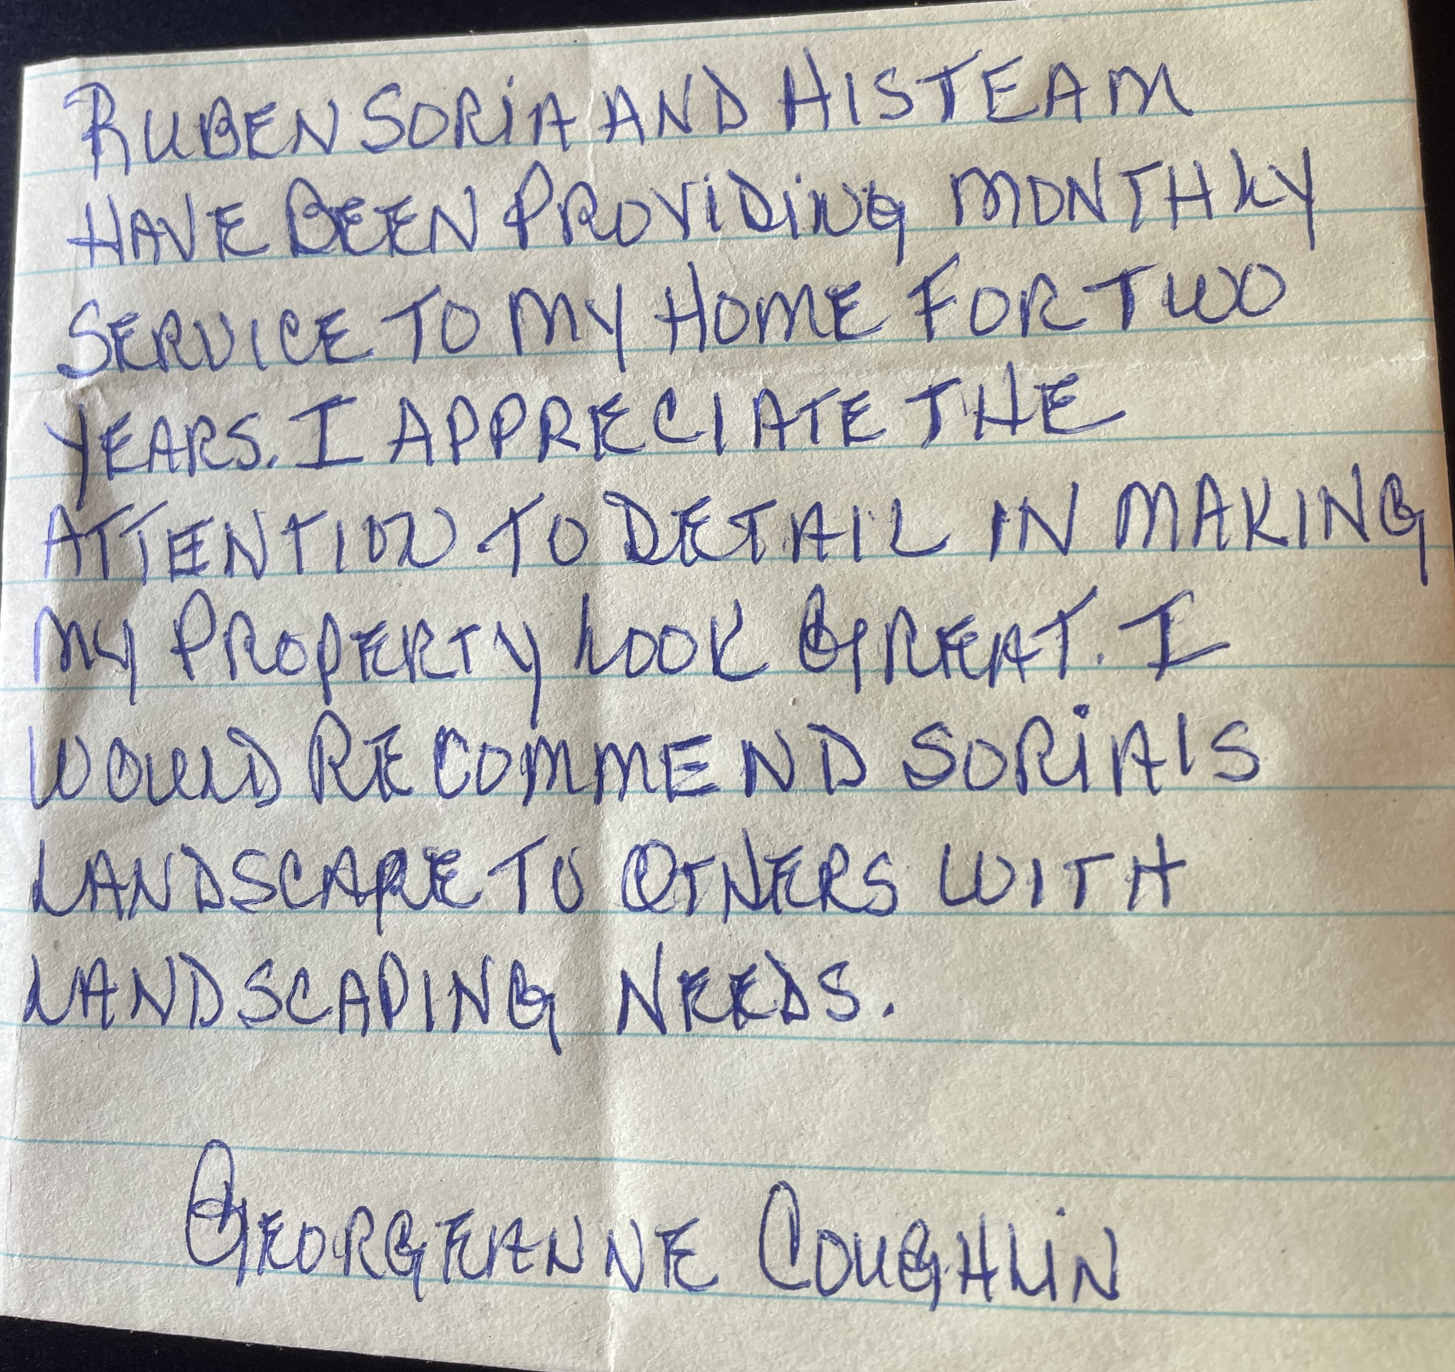 RUBEN SORIA AND HIS TEAM
HAVE BEEN PROVIDING MONTHLY
SERVICE TO MY HOME FOR TWO
YEARS. I APPRECIATE THE
ATTENTION TO DETAIL IN MAKING
MY PROPERTY LOOK GREAT. I
WOULD RECOMMEND SORIA'S
LANDSCAPE TO OTHERS WITH
LANDSCAPING NEEDS.
GEORGEANNE COUGHLIN